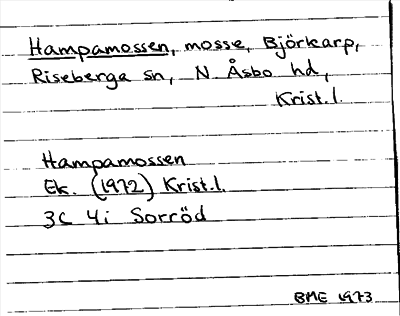 Hampamossen, mosse, Björkarp,
Riseberga sn, N Åsbo hd,
Krist.l.
Hampamossen
Ek. (1972) Krist.l.
3C 4i Sorröd
BME 1973